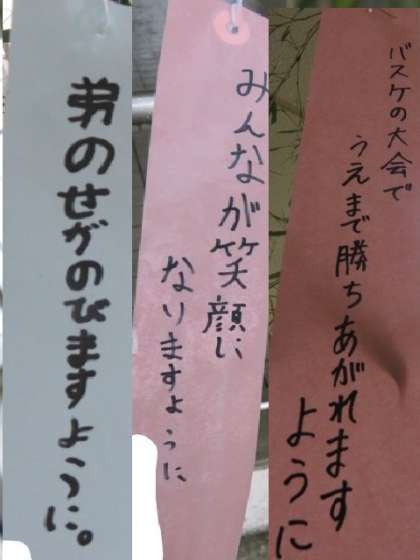 弟のせがのびますように。
みんなが笑顔に
なりますように
バスケの大会で
うえまで勝ちあがれます
ように